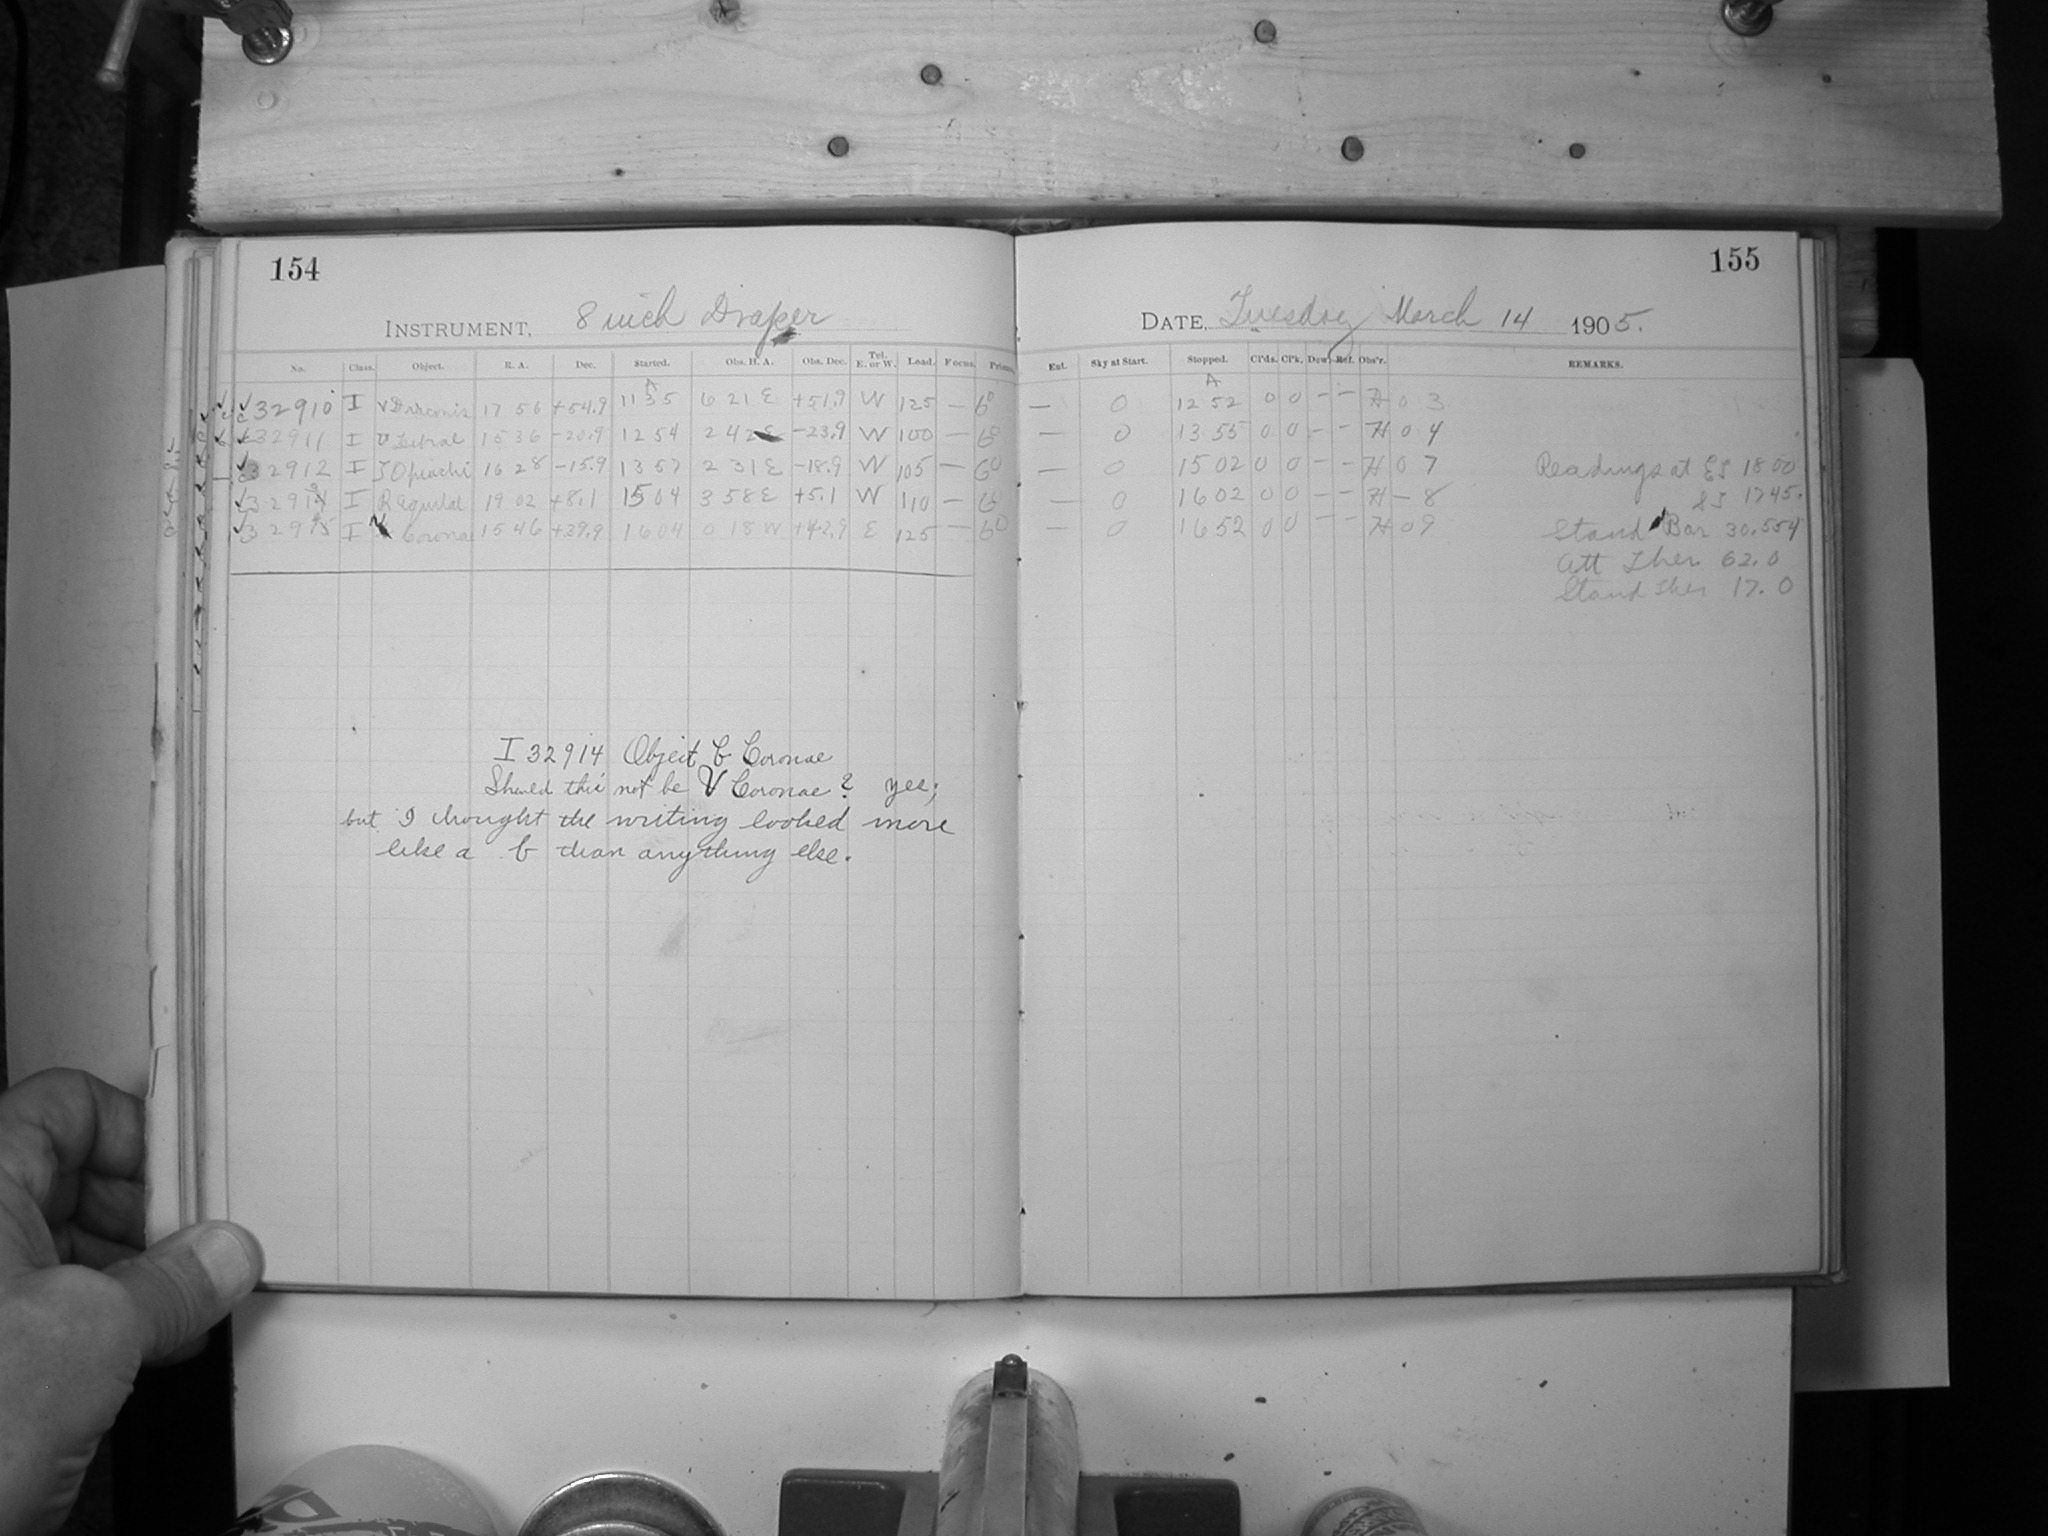 154
155
INSTRUMENT, 8 inch Draper
DATE, Tuesday March 14 1905.
No. Class. Object. R. A. Dec. Started. Obs. H. A. Obs. Dec. Tel. E. or W. Lead. Focus. Prisms.
Ext. Sky at Start. Stopped. Cl'ds. Cl'k. Dew. Ref. Obs'r. REMARKS.
32910 I V Draconis 17 56 +54.9 11 35 6 21 E +51.9 W 125 — 6° — 0 12 52 0 0 - - H 0 3
32911 I U Librae 15 36 -20.9 12 54 2 42 E -23.9 W 100 — 6° — 0 13 55 0 0 - - H 0 4
32912 I T Ophiuchi 16 28 -15.9 13 57 2 31 E -18.9 W 105 — 6° — 0 15 02 0 0 - - H 0 7 Readings at ES 18 00
I R Aquilae 19 02 +8.1 15 04 3 58 E +5.1 W 110 — 6° — 0 16 02 0 0 - - H - 8 SS 1745.
I Corona 15 46 +39.9 16 04 0 18 W +42.9 E 125 — 6° — 0 16 52 0 0 - - H 0 9 Stand Bar 30.554
Att Ther 62.0
Stand Ther 17.0
I 32914 Object b Coronae
Should this not be V Coronae? yes;
but I thought the writing looked more
like a b than anything else.